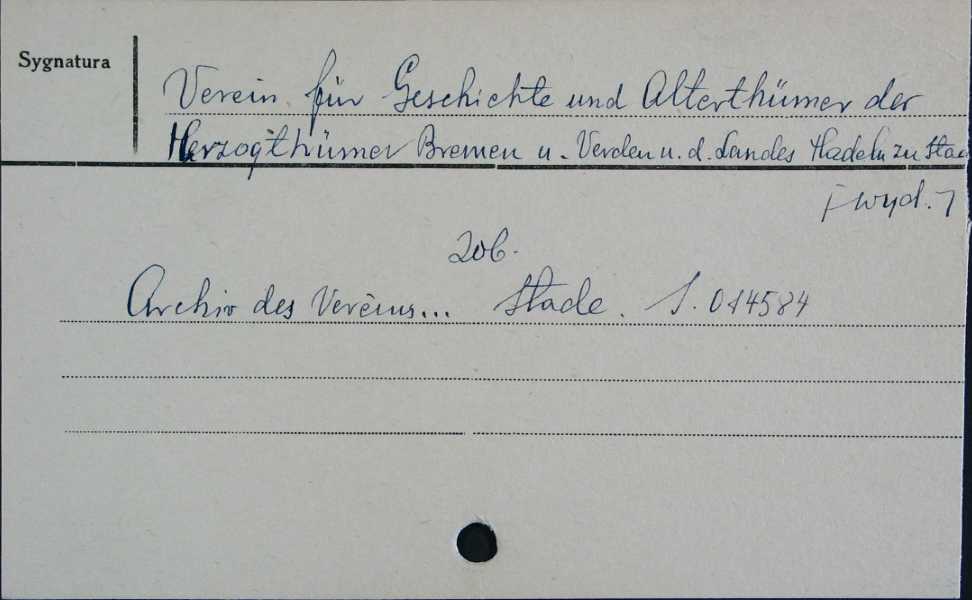 Sygnatura
Verein für Geschichte und Alterthümer der
Herzogthümer Bremen u. Verden u. d. Landes Hadeln zu Stad
[wyd.]
Zob.
Archiv des Vereins... Stade. S. 014584